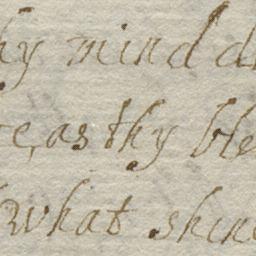 hy mind d
e, as thy ble
what shine